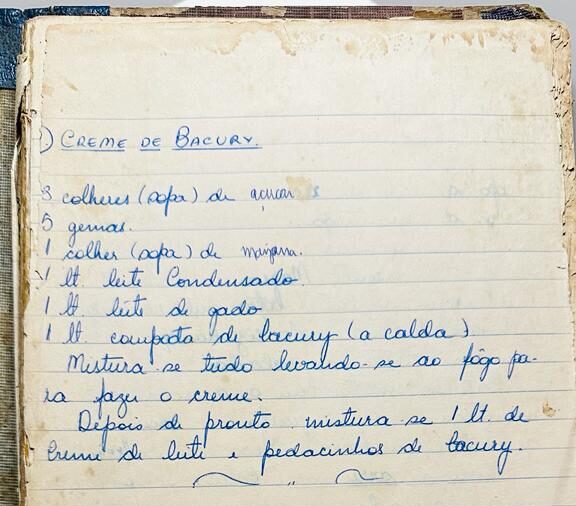 1) CREME DE BACURY.
3 colheres (sopa) de açucar
5 gemas.
1 colher (sopa) de maizena.
1 lt. leite Condensado.
1 lt. leite de gado
1 lt. compota de bacury (a calda)
Mistura-se tudo levando-se ao fôgo pa-
ra fazer o creme.
Depois de pronto mistura se 1 lt. de
Creme de leite e pedacinhos de bacury.